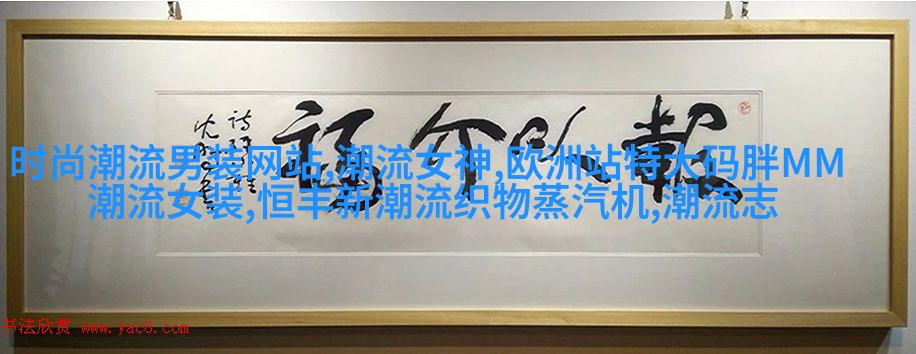 報以介福
时尚潮流男装网站,潮流女神,欧洲站特大码胖MM
潮流女装,恒丰新潮流织物蒸汽机,潮流志
书法欣赏 www.yac8.com